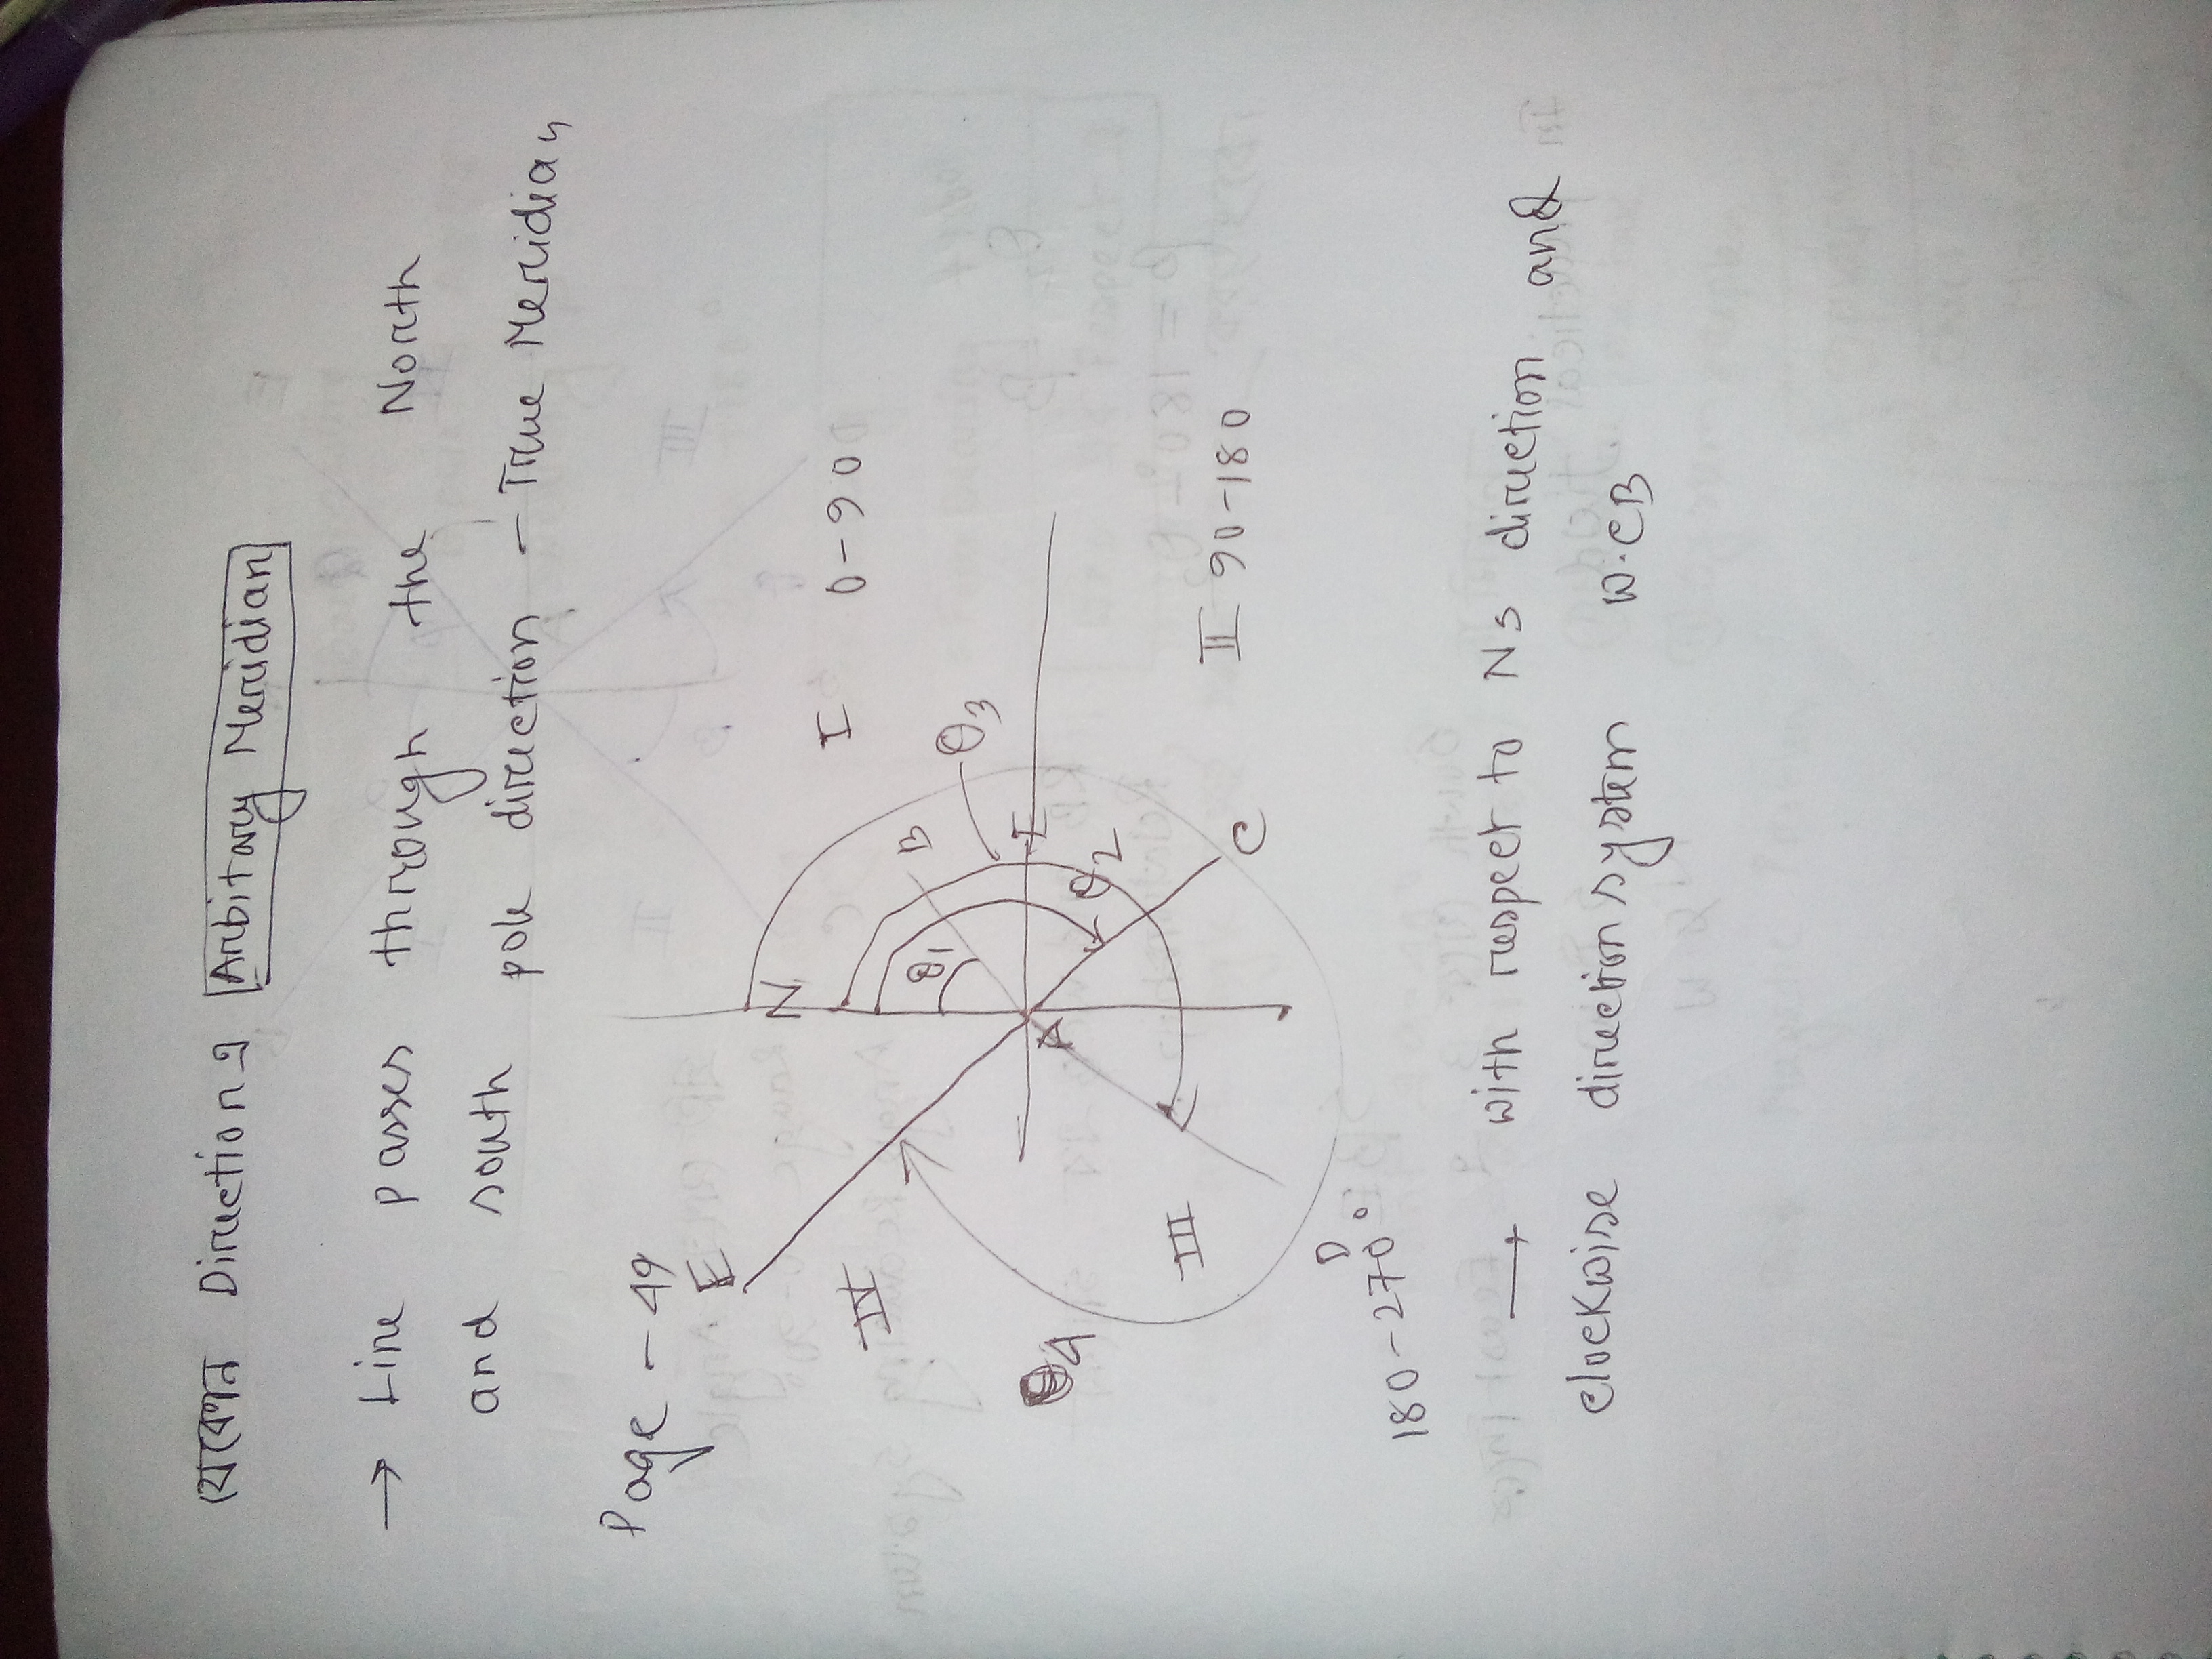 যেকোন Direction এ Arbitrary Meridian
→ Line passes through the North
and south pole direction - True Meridian
Page - 49
N
E
IV
I 0-90
B
θ1
θ3
I
A
θ2
θ4
C
III
II 90-180
D
180-270°
→ with respect to NS direction and
clockwise direction system W.CB